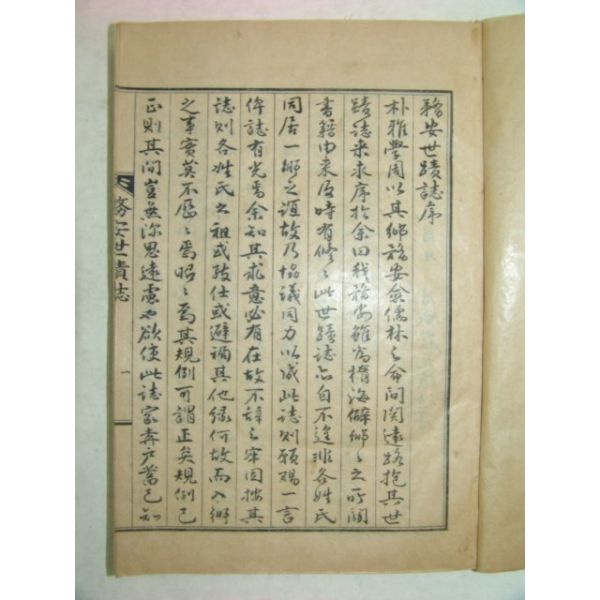 務安世蹟誌序
朴雅學周以其鄉務安僉儒林之命間関遠路抱其世
蹟誌来求序於余曰我務安雖為檣海僻鄉之所関
書籍由来及時有修之此世蹟誌亦自不逮誰各姓氏
同居一鄉之誼故乃協議同力以成此誌則願賜一言
俾誌有光焉余知其求意必有在故不辞之牢因按其
誌則各姓氏之祖或筮仕或避禍其他緣何故而入鄉
之事實莫不歷々焉昭々焉其規例可謂正矣規例已
正則其間豈無深思遠慮也欲使此誌家弆戶蓄已知
務安世蹟誌
一